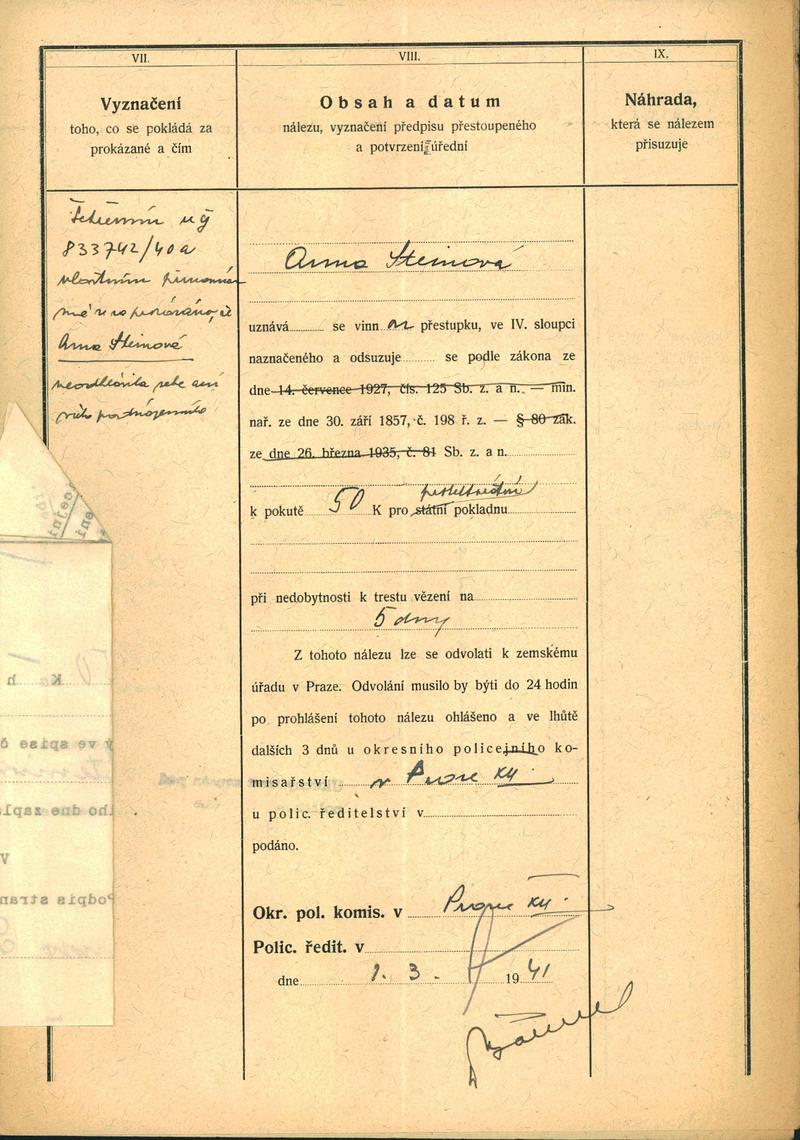 VII.
Vyznačení
toho, co se pokládá za
prokázané a čím
833742/40a
vlastním
Anna Steinová
neodhlásila sebe ani
VIII.
Obsah a datum
nálezu, vyznačení předpisu přestoupeného
a potvrzení úřední
Anna Steinová
uznává se vinn ou přestupku, ve IV. sloupci
naznačeného a odsuzuje se podle zákona ze
dne 14. července 1927, čís. 125 Sb. z. a n. — min.
nař. ze dne 30. září 1857, č. 198 ř. z. — § 80 zák.
ze dne 26. března 1935, č. 81 Sb. z. a n.
protektorátní
k pokutě 50 K pro státní pokladnu
při nedobytnosti k trestu vězení na
5 dny
Z tohoto nálezu lze se odvolati k zemskému
úřadu v Praze. Odvolání musilo by býti do 24 hodin
po prohlášení tohoto nálezu ohlášeno a ve lhůtě
dalších 3 dnů u okresního policejního ko-
misařství v Praze XII
u polic. ředitelství v
podáno.
Okr. pol. komis. v Praze XII.
Polic. ředit. v
dne 1. 3. 1941
IX.
Náhrada,
která se nálezem
přisuzuje
K h
ý ve spise č
ího dne zapla
V
Podpis stran